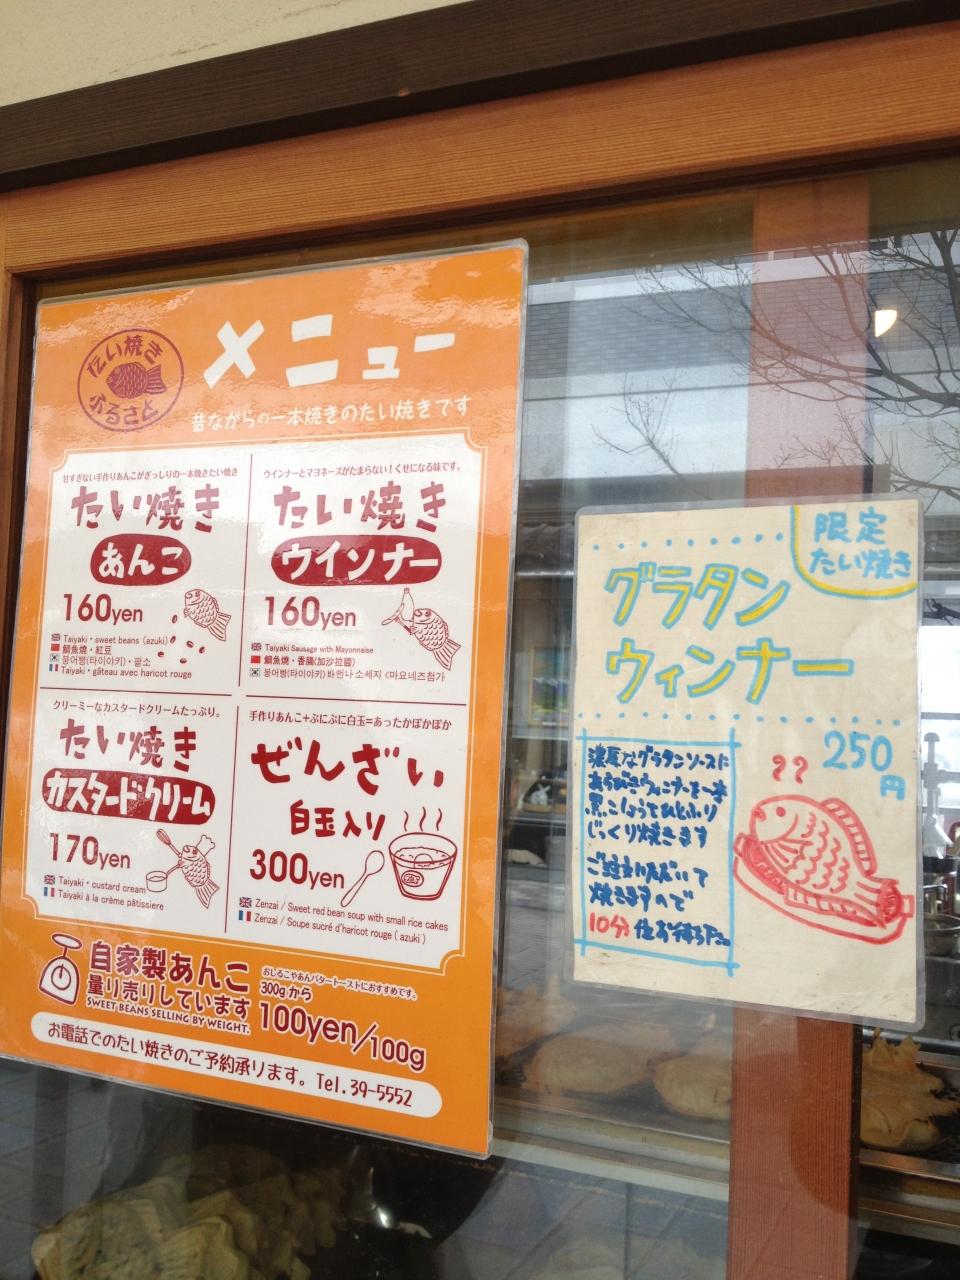 たい焼き
ふるさと
メニュー
昔ながらの一本焼きのたい焼きです
甘すぎない手作りあんこがぎっしりの一本焼きたい焼き
たい焼き
あんこ
160yen
Taiyaki・sweet beans (azuki)
鯛魚燒・紅豆
붕어빵(타이야키)・팥소
Taiyaki・gâteau avec haricot rouge
ウインナーとマヨネーズがたまらない！くせになる味です。
たい焼き
ウインナー
160yen
Taiyaki Sausage with Mayonnaise
鯛魚燒・香腸(加沙拉醬)
붕어빵(타이야키) 비엔나 소세지 <마요네즈첨가
クリーミーなカスタードクリームたっぷり。
たい焼き
カスタードクリーム
170yen
Taiyaki・custard cream
Taiyaki à la crème pâtissiere
手作りあんこ+ぷにぷに白玉=あったかぽかぽか
ぜんざい
白玉入り
300yen
Zenzai / Sweet red bean soup with small rice cakes
Zenzai / Soupe sucré d'haricot rouge ( azuki )
自家製あんこ
量り売りしています
SWEET BEANS SELLING BY WEIGHT.
おしるこやあんバタートーストにおすすめです。
300gから
100yen/100g
お電話でのたい焼きのご予約承ります。Tel.39-5552
限定
たい焼き
グラタン
ウィンナー
250
円
濃厚なグラタンソースに
あらびきウィンナーを一本
黒こしょうをひとふり
じっくり焼きます
ご注文いただいて
焼きますので
10分位お待ち下さい